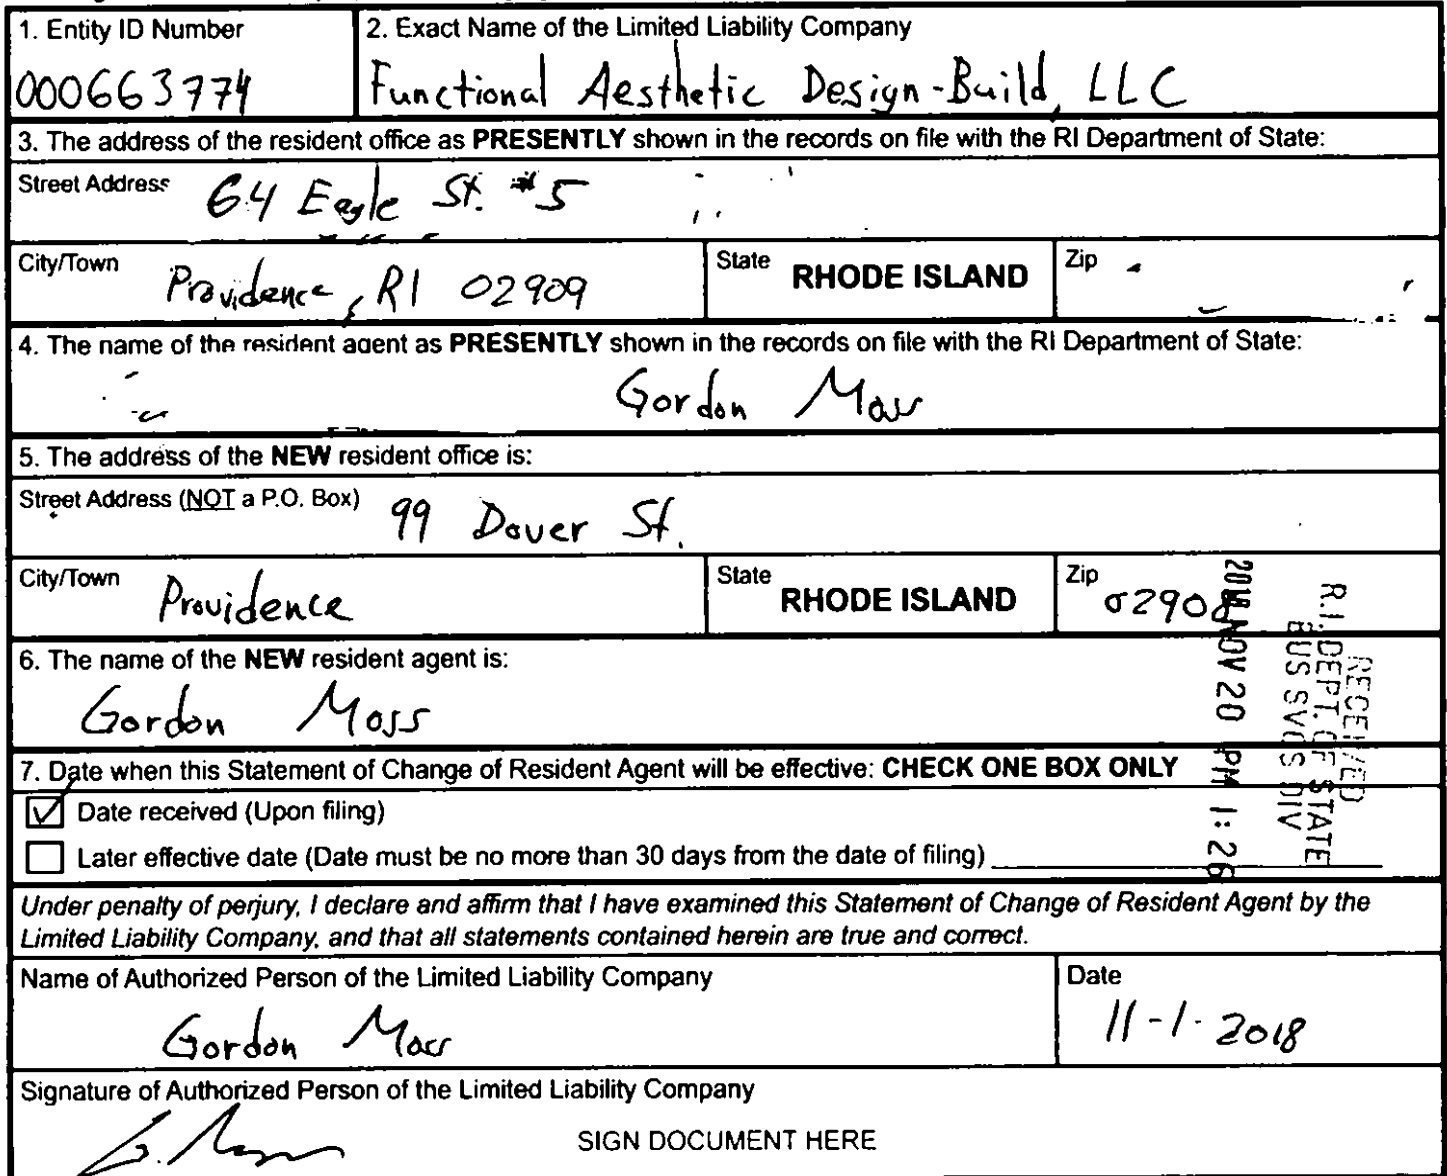 1. Entity ID Number
000663774
2. Exact Name of the Limited Liability Company
Functional Aesthetic Design-Build, LLC
3. The address of the resident office as PRESENTLY shown in the records on file with the RI Department of State:
Street Address 64 Eagle St. #5
City/Town Providence, RI 02909
State RHODE ISLAND
Zip
4. The name of the resident agent as PRESENTLY shown in the records on file with the RI Department of State:
Gordon Moss
5. The address of the NEW resident office is:
Street Address (NOT a P.O. Box) 99 Dover St.
City/Town Providence
State RHODE ISLAND
Zip 02908
6. The name of the NEW resident agent is:
Gordon Moss
RECEIVED
R.I. DEPT. OF STATE
BUS SVCS DIV
2018 NOV 20 PM 1:26
7. Date when this Statement of Change of Resident Agent will be effective: CHECK ONE BOX ONLY
Date received (Upon filing)
Later effective date (Date must be no more than 30 days from the date of filing)
Under penalty of perjury, I declare and affirm that I have examined this Statement of Change of Resident Agent by the
Limited Liability Company, and that all statements contained herein are true and correct.
Name of Authorized Person of the Limited Liability Company
Gordon Moss
Date
11-1-2018
Signature of Authorized Person of the Limited Liability Company
SIGN DOCUMENT HERE